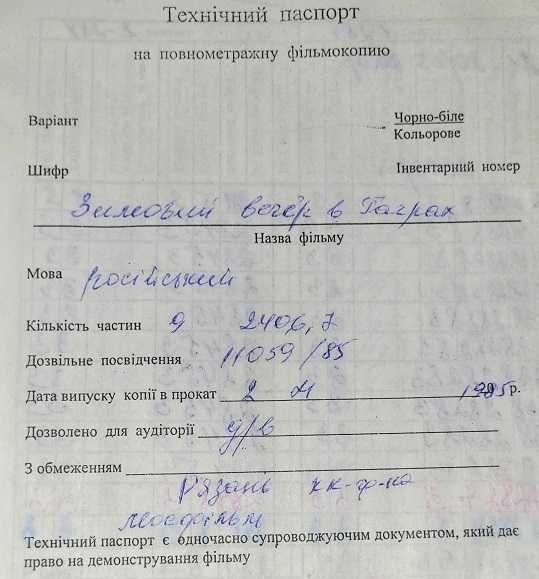 Технічний паспорт
на повнометражну фільмокопію
Варіант Чорно-біле
Кольорове
Шифр Інвентарний номер
Зимовий вечір в Гаграх
Назва фільму
Мова російський
Кількість частин 9 2406,7
Дозвільне посвідчення 11059/85
Дата випуску копії в прокат 2 1985 р.
Дозволено для аудиторії д/в
З обмеженням
Рязань кк-ф-ка
Мосфільм
Технічний паспорт є одночасно супроводжуючим документом, який дає
право на демонстрування фільму